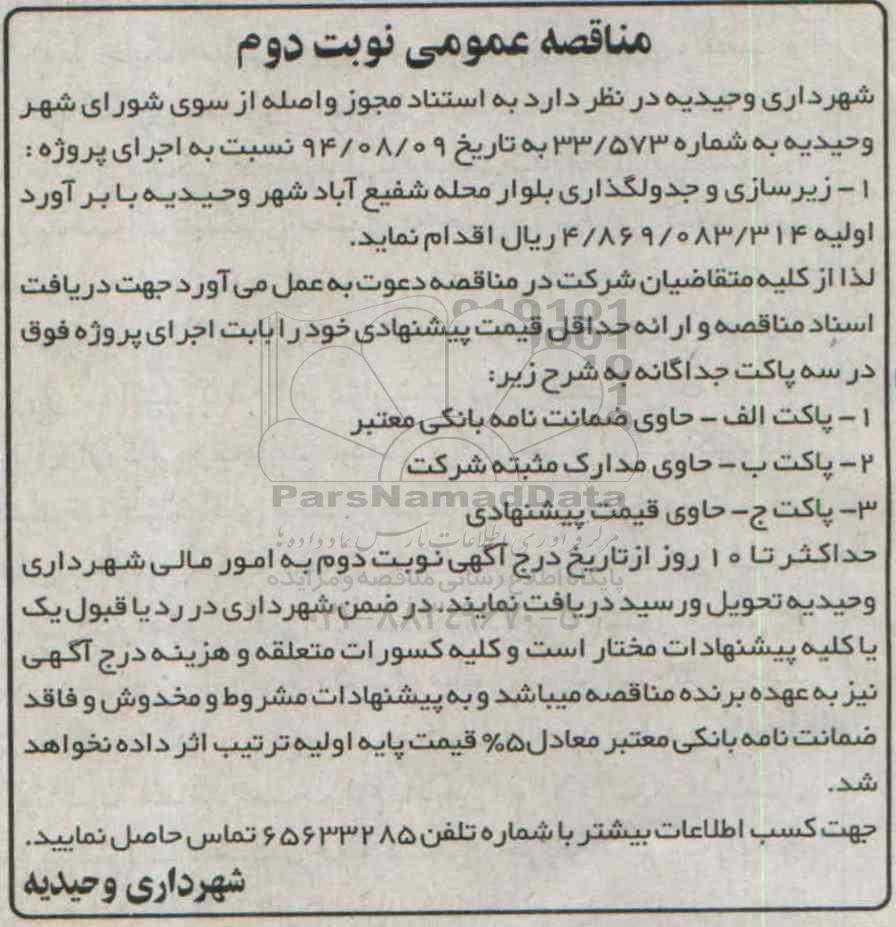 مناقصه عمومی نوبت دوم
شهرداری وحیدیه در نظر دارد به استناد مجوز واصله از سوی شورای شهر
وحیدیه به شماره ۳۳/۵۷۳ به تاریخ ۹۴/۰۸/۰۹ نسبت به اجرای پروژه :
۱- زیرسازی و جدولگذاری بلوار محله شفیع آباد شهر وحیدیه با بر آورد
اولیه ۴/۸۶۹/۰۸۳/۳۱۴ ریال اقدام نماید.
لذا از کلیه متقاضیان شرکت در مناقصه دعوت به عمل می آورد جهت دریافت
اسناد مناقصه و ارائه حداقل قیمت پیشنهادی خود را بابت اجرای پروژه فوق
در سه پاکت جداگانه به شرح زیر:
۱- پاکت الف - حاوی ضمانت نامه بانکی معتبر
۲- پاکت ب - حاوی مدارک مثبته شرکت
ParsNamadData
۳- پاکت ج- حاوی قیمت پیشنهادی
حداکثر تا ۱۰ روز از تاریخ درج آگهی نوبت دوم به امور مالی شهرداری
پایگاه اطلاع رسانی مناقصه و مزایده
وحیدیه تحویل و رسید دریافت نمایند. در ضمن شهرداری در رد یا قبول یک
یا کلیه پیشنهادات مختار است و کلیه کسورات متعلقه و هزینه درج آگهی
نیز به عهده برنده مناقصه میباشد و به پیشنهادات مشروط و مخدوش و فاقد
ضمانت نامه بانکی معتبر معادل ۵% قیمت پایه اولیه ترتیب اثر داده نخواهد
شد.
جهت کسب اطلاعات بیشتر با شماره تلفن ۶۵۶۳۳۲۸۵ تماس حاصل نمایید.
شهرداری وحیدیه